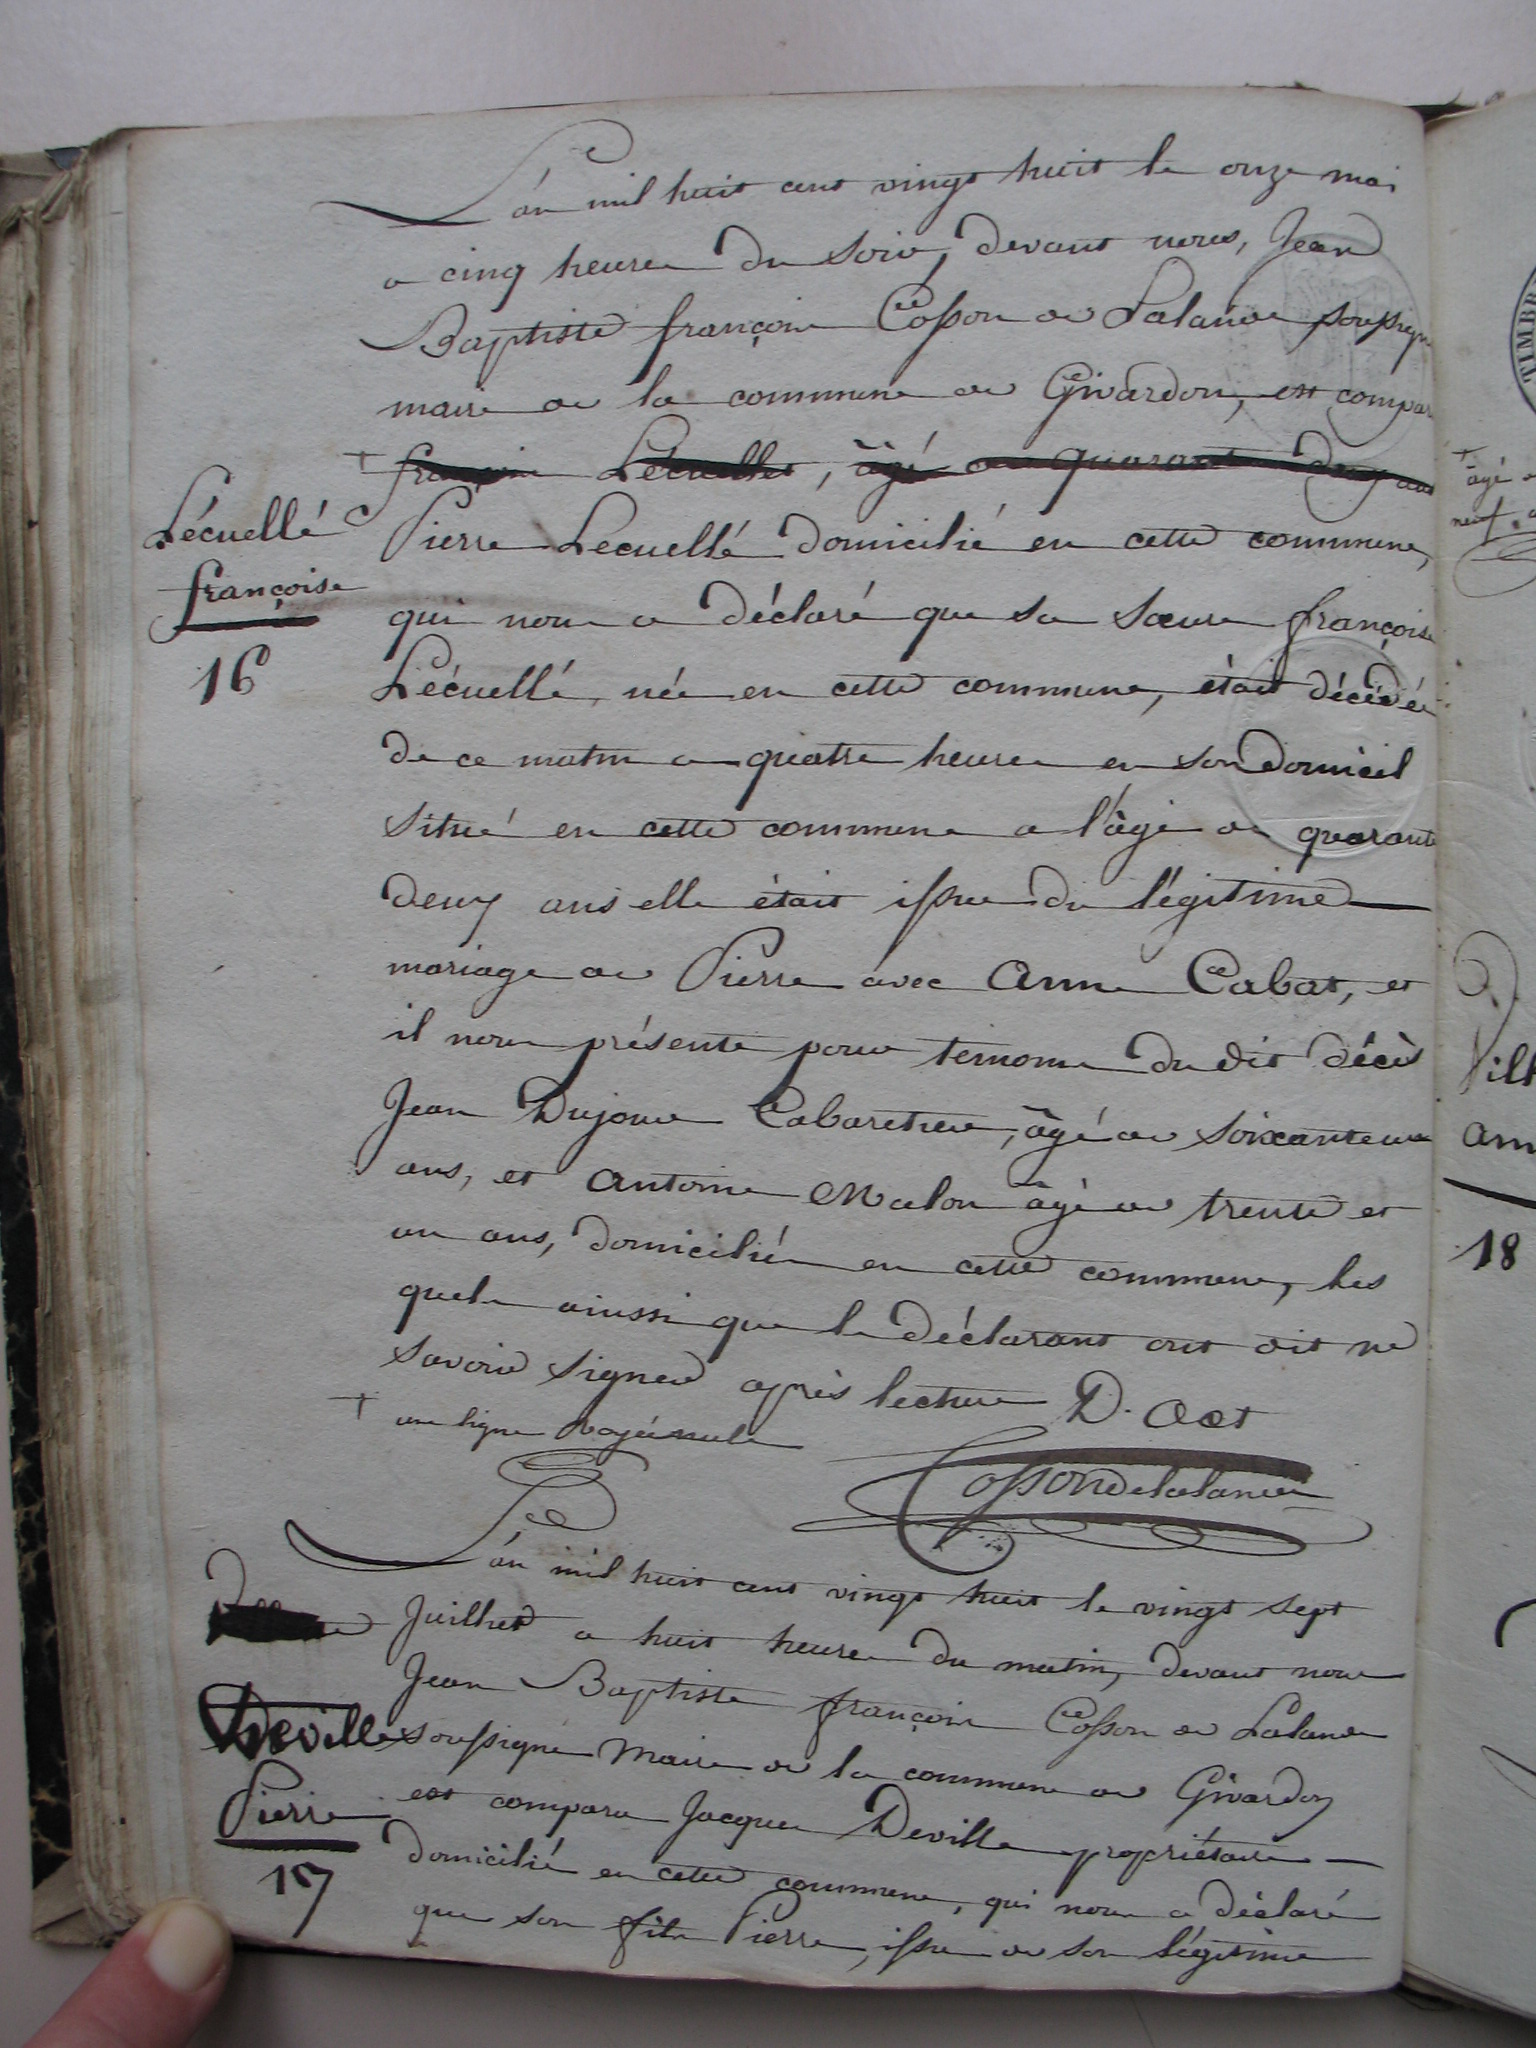 L'an mil huit cent vingt huit le onze mai
a cinq heures du soir, devant nous, Jean
Baptiste françois Cosson de Lalande soussigné
maire de la commune de Givardon, est compar
+ françoise Lécuellé, âgé de quarante deux ans
Lécuellé
françoise
16
Pierre Lecuellé domicilié en cette commune,
qui nous a déclaré que sa sœure françoise
Lécuellé, née en cette commune, était décédée
de ce matin a quatre heures en son domicil
situé en cette commune a l'âge de quarante
deux ans elle était issue du légitime
mariage de Pierre avec Anne Cabat, et
il nous présente pour temoins du dit décès
Jean Dujour Cabaretier, âgé de soixante un
ans, et Antoine Malon âgé de trente et
un ans, domiciliés en cette commune, les
quels ainssi que le déclarant ont dit ne
savoir signer après lecture D. Act
+ une ligne rayée nule
Cosson de lalande
L'an mil huit cent vingt huit le vingt sept
Juilhet a huit heures du matin, devant nous
Jean Baptiste françois Cosson de Lalande
soussigné Maire de la commune de Givardon
est comparu Jacques Deville propriétaire
domicilié en cette commune, qui nous a déclaré
que son fils Pierre, issu de son légitime
Deville
Pierre
17
TIMBR
+
âgé
neuf
Vill
Ann
18